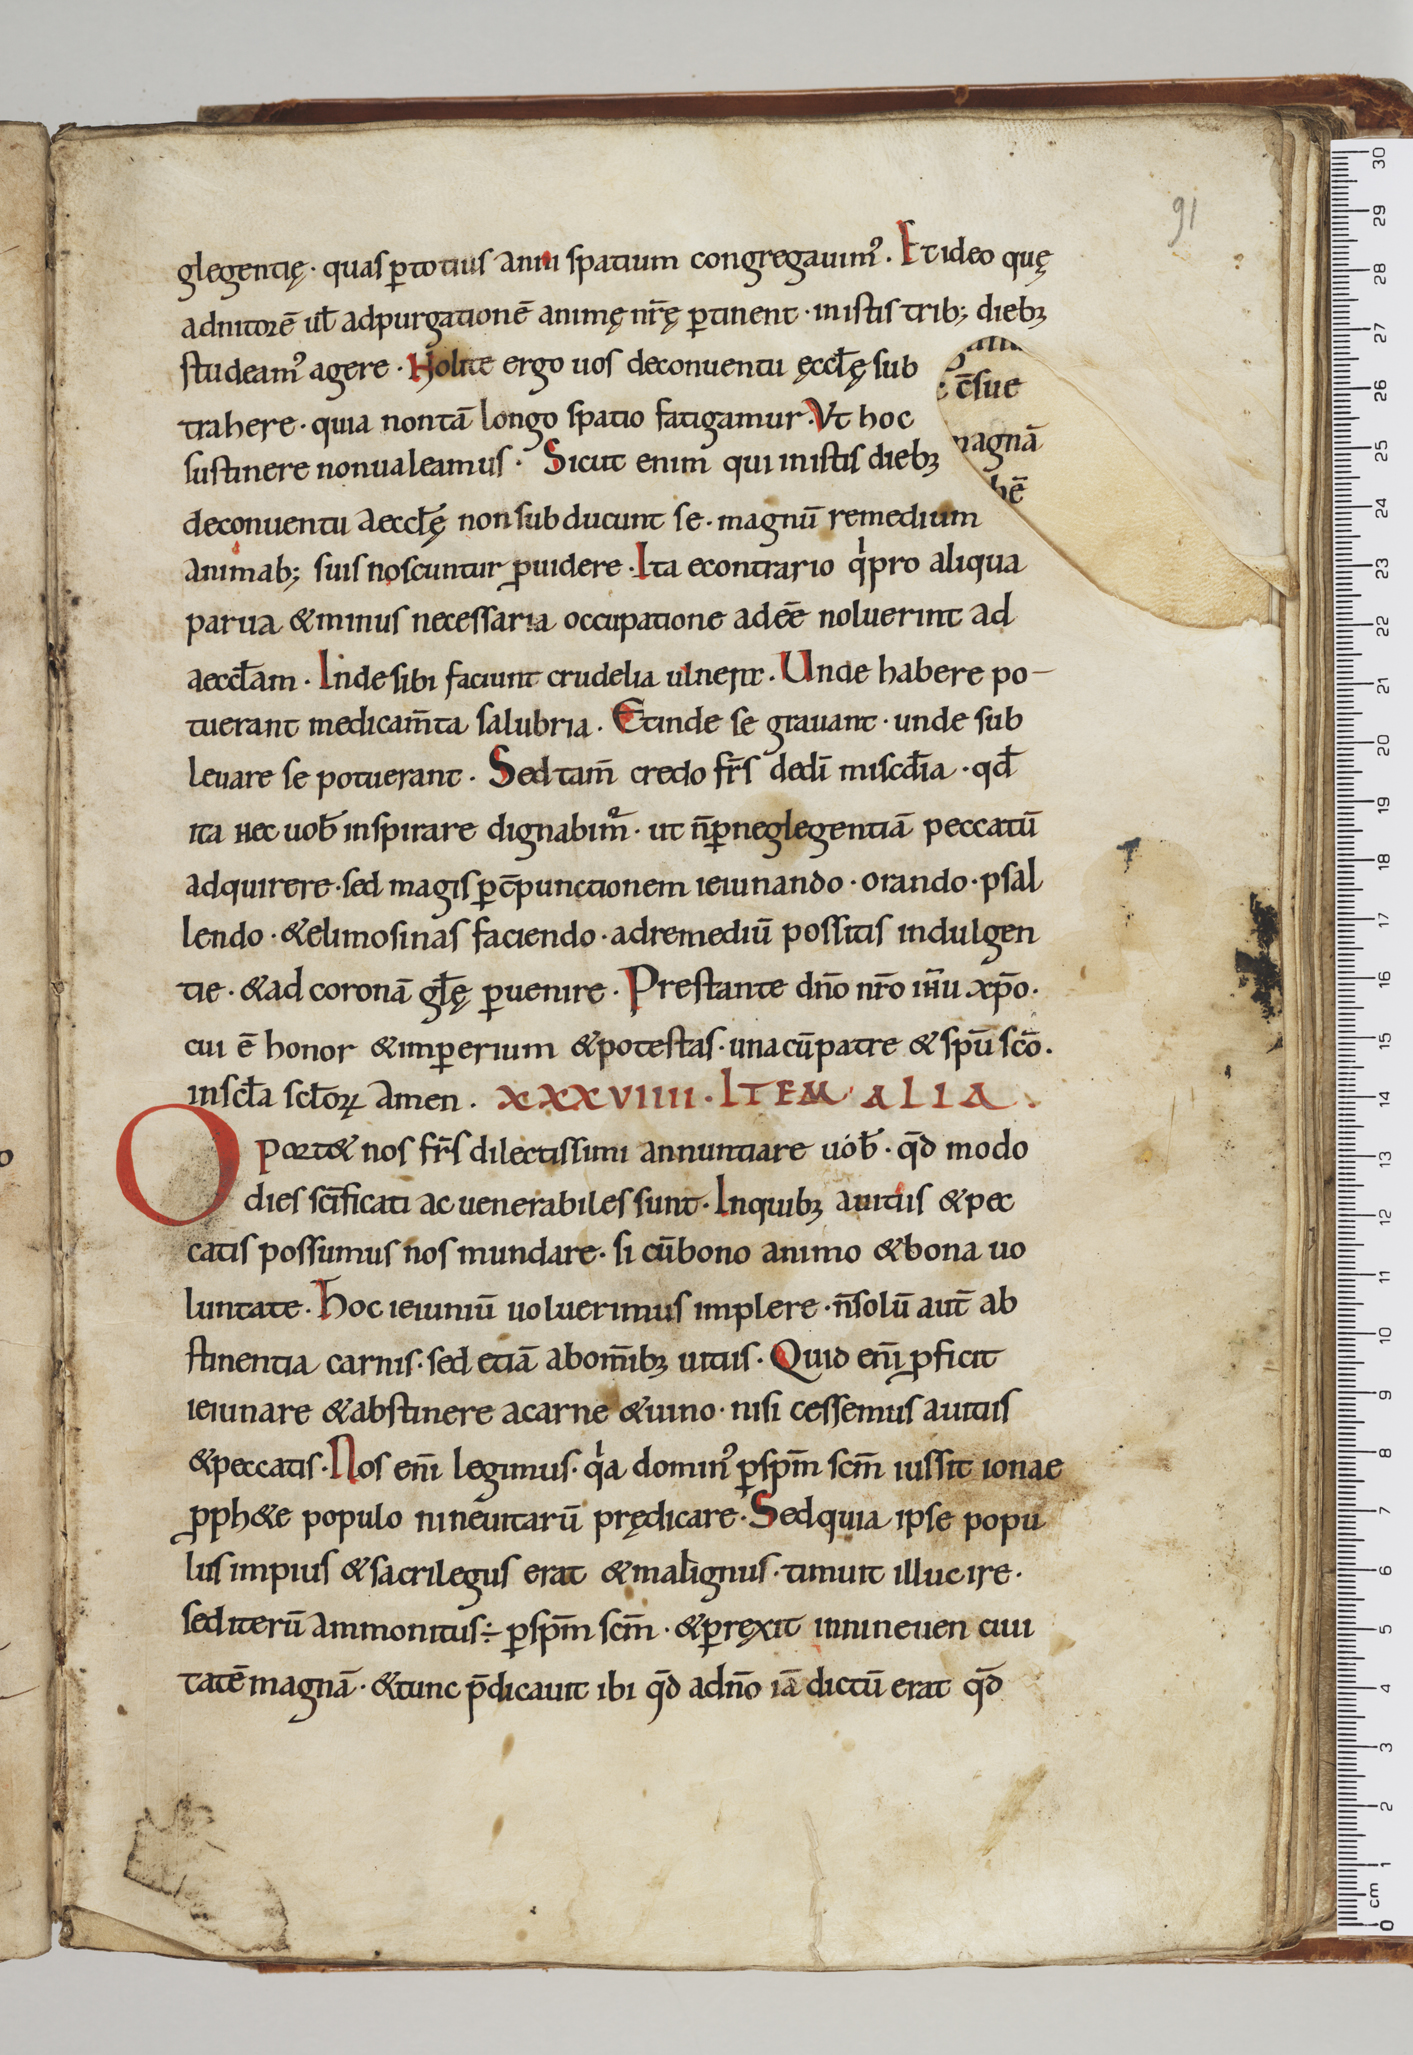 91
glegentię · quas ꝑ totius anni spatium congregauim᾽. Et ideo quę
ad nitorē uł ad purgationē animę nr̄ę ꝑtinent · in istis trib; dieb;
studeam᾽ agere · Nolite ergo uos de conuentu ęccłę sub
trahere · quia non tā longo spatio fatigamur. Vt hoc
sustinere non ualeamus · Sicut enim qui in istis dieb;
de conuentu aeccłę non subducunt se · magnū remedium
animab; suis noscuntur ꝓuidere · Ita econtrario qͥ pro aliqua
parua & minus necessaria occupatione adeē noluerint ad
aeccłam · Inde sibi faciunt crudelia ulnera. Unde habere po-
tuerant medicam̄ta salubria. Et inde se grauant · unde sub
leuare se potuerant · Sed tam̄ credo fr̄s de dī miscd̄ia · qđ
ita hec uob̄ inspirare dignabim̄ · ut n̄ ꝑ neglegentiā peccatū
adquirere · sed magis ꝑ c̄punctionem ieiunando · orando · psal
lendo · & elimosinas faciendo · ad remediū possitis indulgen
tie · & ad coronā głę ꝑuenire · Prestante dn̄o nr̄o ih̄u xp̄o ·
cui ē honor & imꝑerium & potestas · una cū patre & spū scō ·
in scła scłoꝝ amen . XXXVIIII · ITEM ALIA .
Oport& nos fr̄s dilectissimi annuntiare uob̄ · qd̄ modo
dies scīficati ac uenerabiles sunt · In quib; a uitiis & pec
catis possumus nos mundare · si cū bono animo & bona uo
luntate · Hoc ieiuniū uoluerimus implere · n̄ solū aut̄ ab
stinentia carnis · sed etiā ab om̄ib; uitiis · Quid enī ꝓficit
ieiunare & abstinere a carne & uino · nisi cessemus a uitiis
& peccatis · Nos enī legimus · qͥa domin᾽ ꝑ spm̄ scm̄ iussit ionae
ꝓph&e populo nineuitarū prędicare · Sed quia ipse popu
lus impius & sacrilegus erat & malignus · timuit illuc ire ·
sed iterū ammonitus ÷ ꝑ spm̄ scm̄ · & ꝑręxit in nineuen ciui
tatē magnā · & tunc p̄dicauit ibi qd̄ a dn̄o iā dictū erat qd̄
c̄sue
magnā
bē